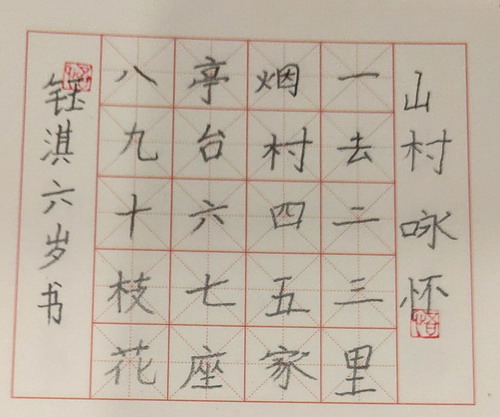 山村咏怀
一去二三里
烟村四五家
亭台六七座
八九十枝花
钰淇六岁书